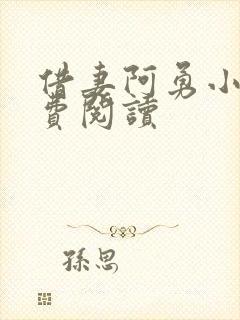 借妻阿勇小
費閱讀
孫思